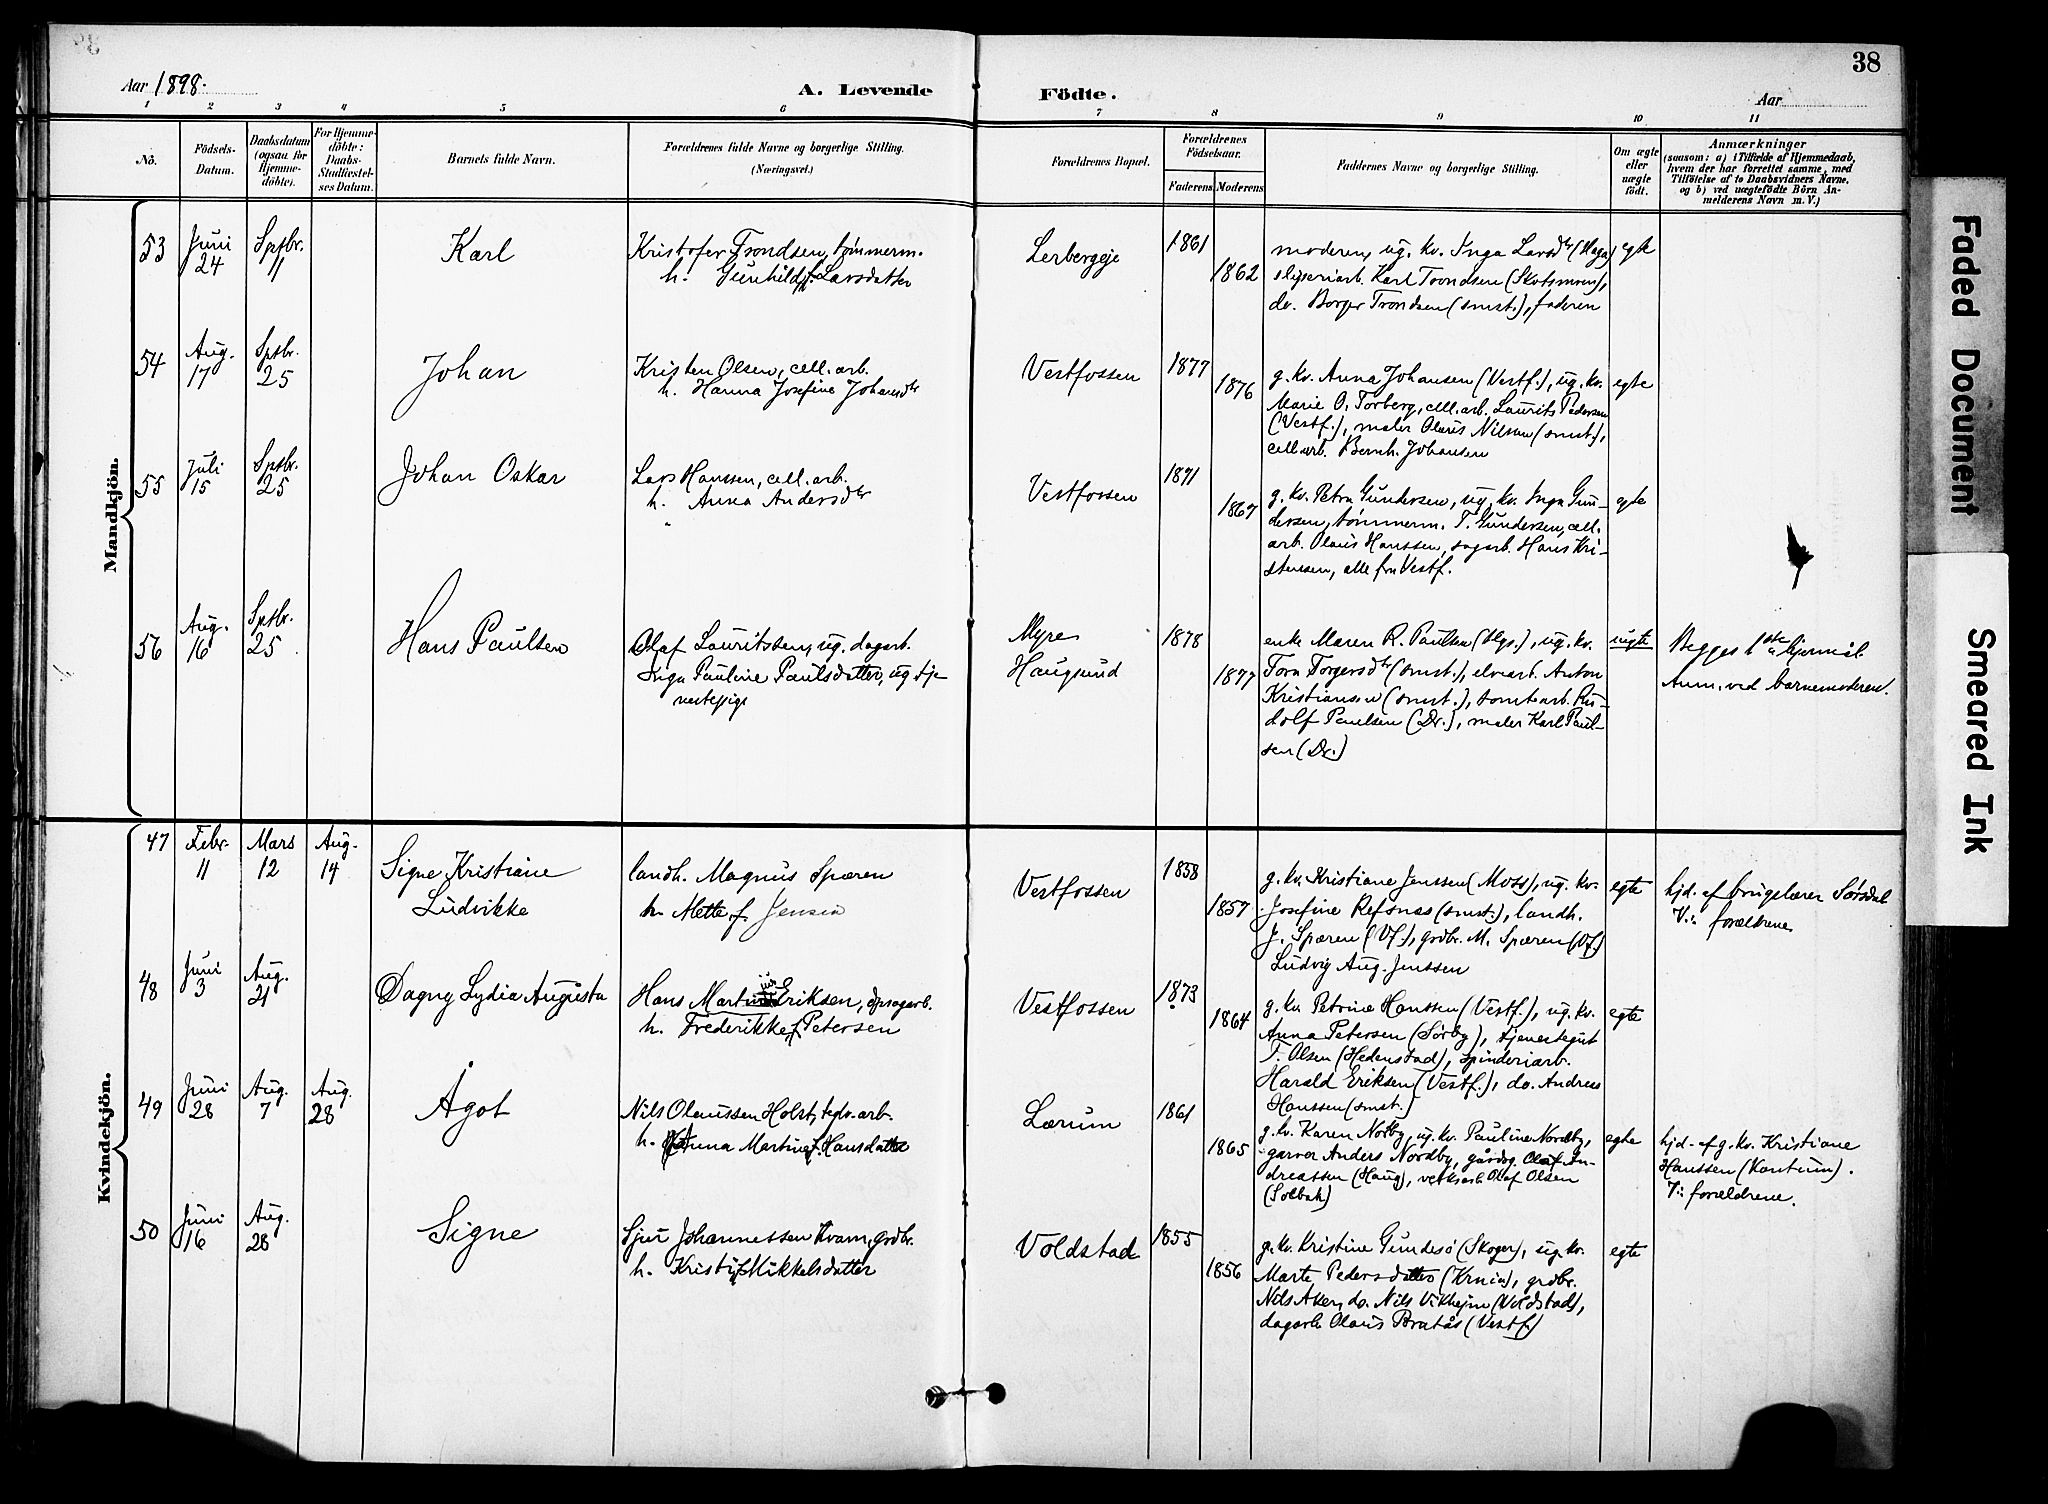 Aar 1898.
A. Levende Födte.
Aar
38
1 2 3 4 5 6 7 8 9 10 11
No.
Födsels-
Datum.
Daabsdatum
(ogsaa for
Hjemme-
döbte).
For Hjemme-
döbte:
Daabs-
Stadfæstel-
ses Datum.
Barnets fulde Navn.
Forældrenes fulde Navne og borgerlige Stilling.
(Næringsvei.)
Forældrenes Bopæl.
Forældrenes
Födselsaar.
Faderens Moderens
Faddernes Navne og borgerlige Stilling.
Om ægte
eller
uægte
födt.
Anmærkninger
(saasom: a) i Tilfælde af Hjemmedaab,
hvem der har forrettet samme, med
Tilföielse af to Daabsvidners Navne,
og b) ved uægtefödte Börn An-
melderens Navn m. V.)
Mandkjön.
53
Juni
24
Sptbr.
11
Karl
Kristofer Trondsen, tømmerm.
h. Gunhild f. Larsdatter
Lerbergeje
1861
1862
moderen, ug. kv. Inga Larsdtr (Haga)
sliperiarb. Karl Trondsen (Skotsmoen),
do. Borger Trondsen (smst.), faderen
egte
54
Aug.
17
Sptbr.
25
Johan
Kristen Olsen, cell. arb.
h. Hanna Josefine Johansdtr
Vestfossen
1877
1876
g. kv. Anna Johansen (Vestf.), ug. kv.
Marie O. Torberg, cell. arb. Laurits Pedersen
(Vestf.), maler Olaus Nilsen (smst.),
cell arb. Bernh. Johansen
egte
55
Juli
15
Sptbr.
25
Johan Oskar
Lars Hanssen, cell. arb.
h. Anna Andersdtr
Vestfossen
1871
1867
g. kv. Petra Gundersen, ug. kv. Inga Gun-
dersen, tømmerm. T. Gundersen, cell.
arb. Olaus Hanssen, sagarb. Hans Kri-
stensen, alle fra Vestf.
egte
56
Aug.
16
Sptbr.
25
Hans Paulsen
Olaf Lauritssen, ug. dagarb.
Inga Pauline Paulsdatter, ug tje-
nestepige
Myre
Haugsund
1878
1877
enke Maren R. Paulsen (Hgs.), ug. kv.
Tora Torgersdtr (smst.), elvearb. Anton
Kristiansen (smst.), tomtearb. Ru-
dolf Paulsen (Dr.), maler Karl Paul-
sen (Dr.)
uegte
Begges 1ste lejermål.
Anm. ved barnemoderen.
Kvindekjön.
47
Febr.
11
Mars
12
Aug.
14
Signe Kristiane
Ludvikke
landh. Magnus Spæren
h. Mette f. Jensen
Vestfossen
1858
1857
g. kv. Kristiane Jenssen (Moss), ug. kv.
Josefine Refsnes (smst.), landh.
J. Spæren (Vf.), grdbr. M. Spæren (Vf.)
Ludvig Aug. Jenssen
egte
hjd. af brugslærer Sørsdal
V.: forældrene
48
Juni
3
Aug.
21
Dagny Lydia Augusta
Hans Martin Eriksen, dpsagarb.
h. Frederikke f. Petersen
Vestfossen
1873
1864
g. kv. Petrine Hanssen (Vestf.), ug. kv.
Anna Petersen (Sørby), tjenestegut
T. Olsen (Hedenstad), spinderiarb.
Harald Eriksen (Vestf.), do. Andreas
Hanssen (smst.)
egte
49
Juni
28
Aug.
7
Aug.
28
Ågot
Nils Olaussen Holst, tglv. arb.
h. Anna Martine f. Hansdatter
Lærum
1861
1865
g. kv. Karen Nordby, ug. kv. Pauline Nordby,
garver Anders Nordby, gårdsg. Olaf An-
dreassen (Haug), verksarb Olaf Olsen
(Solbak)
egte
hjd. af g. kv. Kristiane
Hanssen (Kantum).
V.: forældrene.
50
Juni
16
Aug.
28
Signe
Sjur Johannessen Kvam, grdbr.
h. Kristi f. Mikkelsdatter
Voldstad
1855
1856
g. kv. Kristine Gundesø (Skoger), ug. kv.
Marte Pedersdatter (Krnia), grdbr.
Nils Aker, do. Nils Vikhejm (Voldstad),
dagarb Olaus Bratås (Vestf.)
egte
Faded Document
Smeared Ink